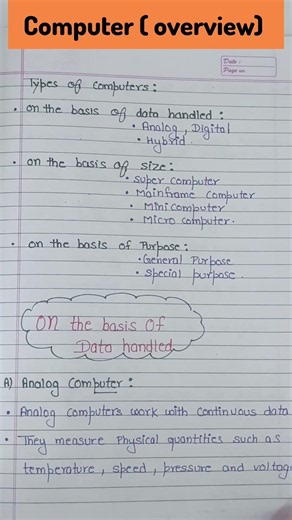 Computer ( overview)
Date :
Page no.
Types of Computers :
• on the basis of data handled :
• Analog , Digital
• Hybrid .
• on the basis of size :
• super computer
• Mainframe computer
• Mini computer
• Micro computer .
• on the basis of Purpose :
• General Purpose
• Special purpose .
ON the basis Of
Data handled
A) Analog Computer :
• Analog computers work with continuous data
• They measure Physical quantities such as
temperature , speed , pressure and voltag